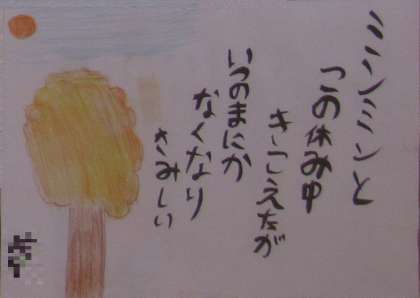 ミンミンと
この休み中
きこえたが
いつのまにか
なくなり
さみしい